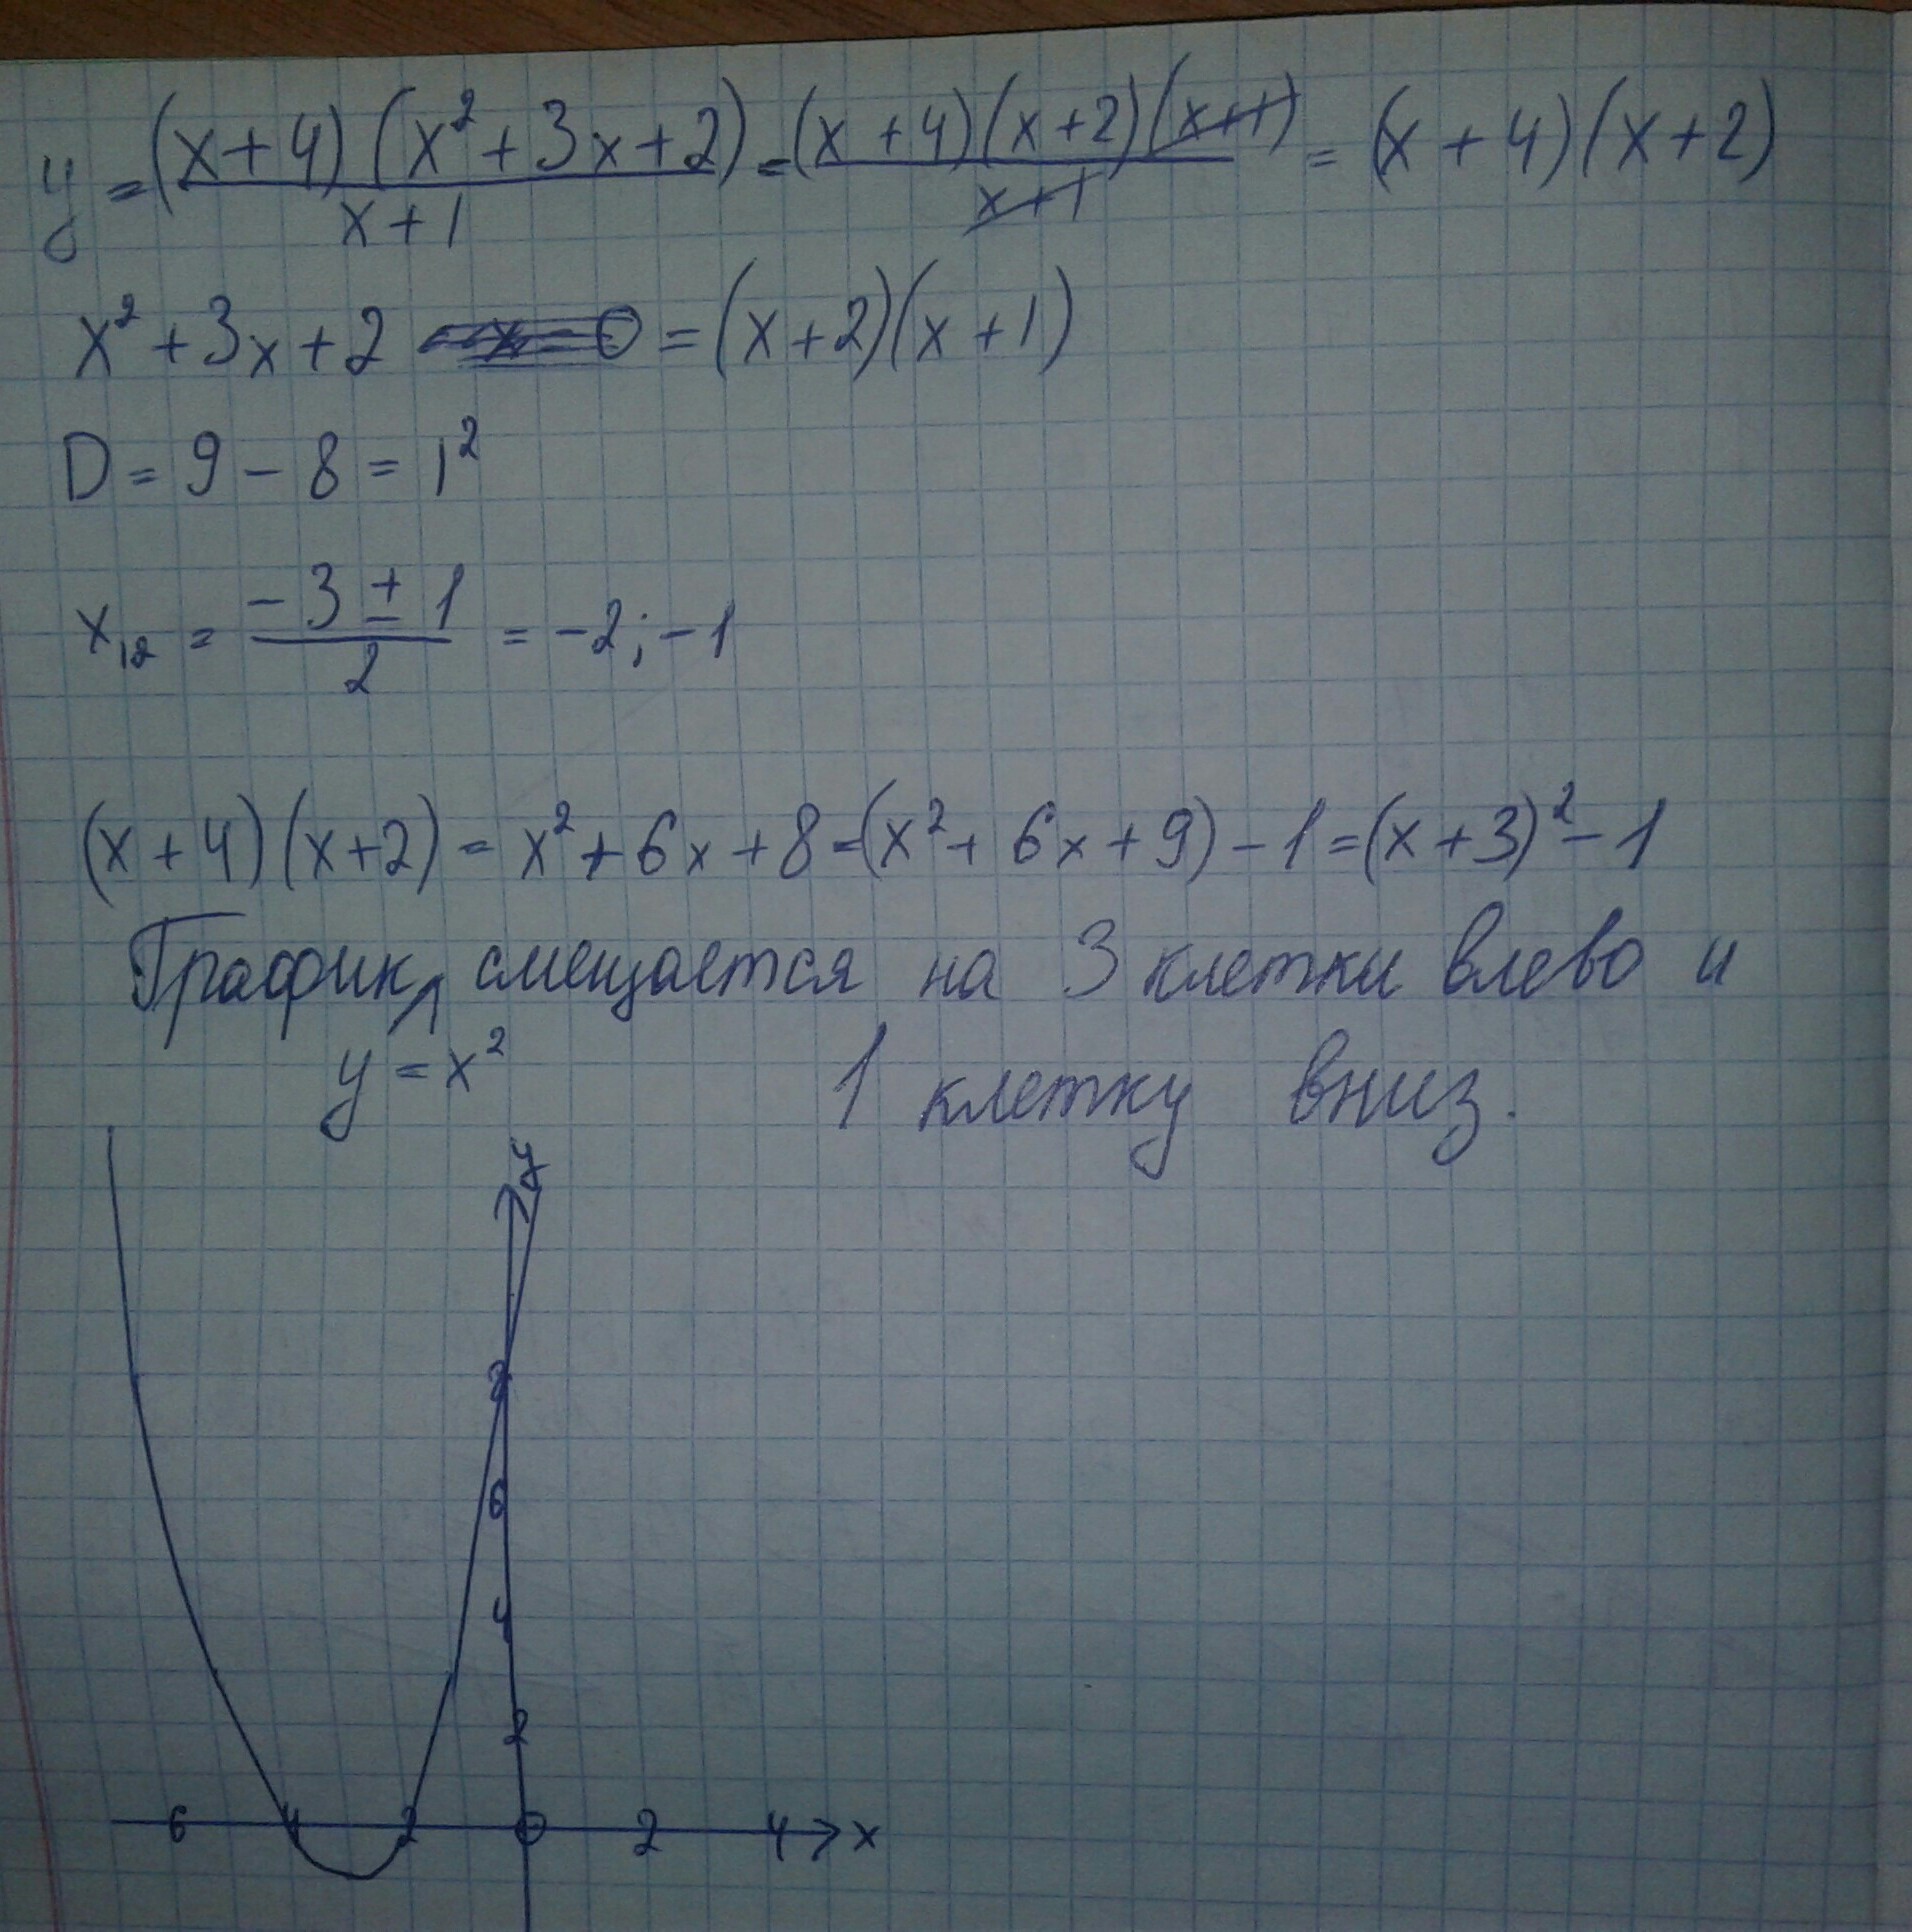 y = (x+4)(x²+3x+2)/(x+1) = (x+4)(x+2)(x+1)/(x+1) = (x+4)(x+2)
x²+3x+2 = (x+2)(x+1)
D = 9 - 8 = 1²
x₁₂ = (-3 ± 1)/2 = -2; -1
(x+4)(x+2) = x²+6x+8 = (x²+6x+9) - 1 = (x+3)² - 1
График смещается на 3 клетки влево и
y = x² 1 клетку вниз.
y
8
6
4
2
6 4 2 0 2 4 x